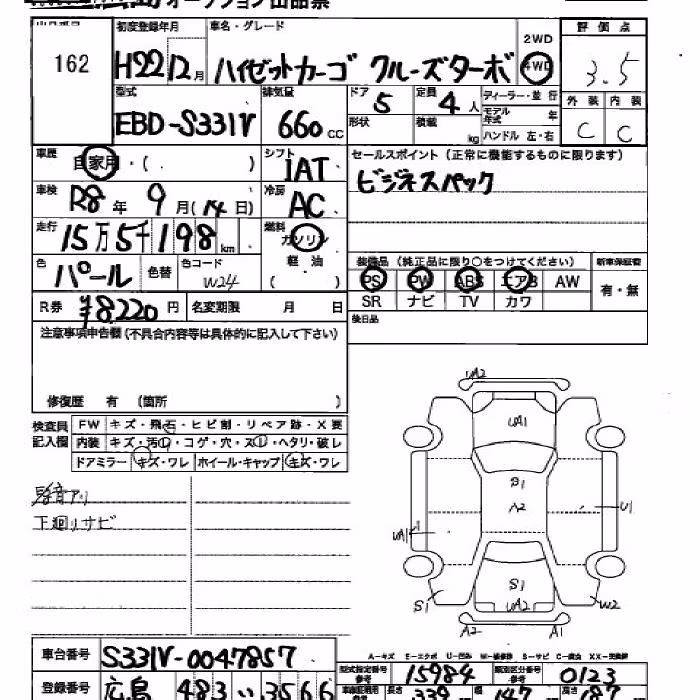 オークション出品票
出品番号 初度登録年月 車名・グレード 2WD 評価点
162 H22 12月 ハイゼットカーゴ クルーズターボ 4WD 3.5
型式 排気量 ドア 5 定員 4人 ディーラー・並行 外装 内装
EBD-S331V 660cc 形状 積載 kg モデル年式 年 C C
ハンドル 左・右
車歴 自家用・( ) シフト IAT セールスポイント (正常に機能するものに限ります)
ビジネスパック
車検 R8年 9月(14日) 冷房 AC
走行 15万5千198km 燃料 ガソリン
軽油
( )
装備品 (純正品に限り○をつけてください) 新車保証書
色 パール 色替 色コード W24
PS PW ABS エアB AW 有・無
SR ナビ TV カワ
R券 ¥8220円 名変期限 月 日
後日品
注意事項申告欄(不具合内容等は具体的に記入して下さい)
修復歴 有 (箇所 )
検査員記入欄
FW キズ・飛石・ヒビ割・リペア跡・X要
内装 キズ・汚れ・コゲ・穴・スレ・ヘタリ・破レ
ドアミラー キズ・ワレ ホイール・キャップ キズ・ワレ
下廻りサビ
A2
UA1
S1
A2
UA1
U1
S1
UA2
S1
W2
A2
A1
A-キズ E-エクボ U-凹み W-補修跡 S-サビ C-腐食 XX-交換跡
車台番号 S331V-0047857
型式指定番号 参考 15984 類別区分番号 参考 0123
登録番号 広島 483 い 3566
長さ 339 幅 147 高さ 187